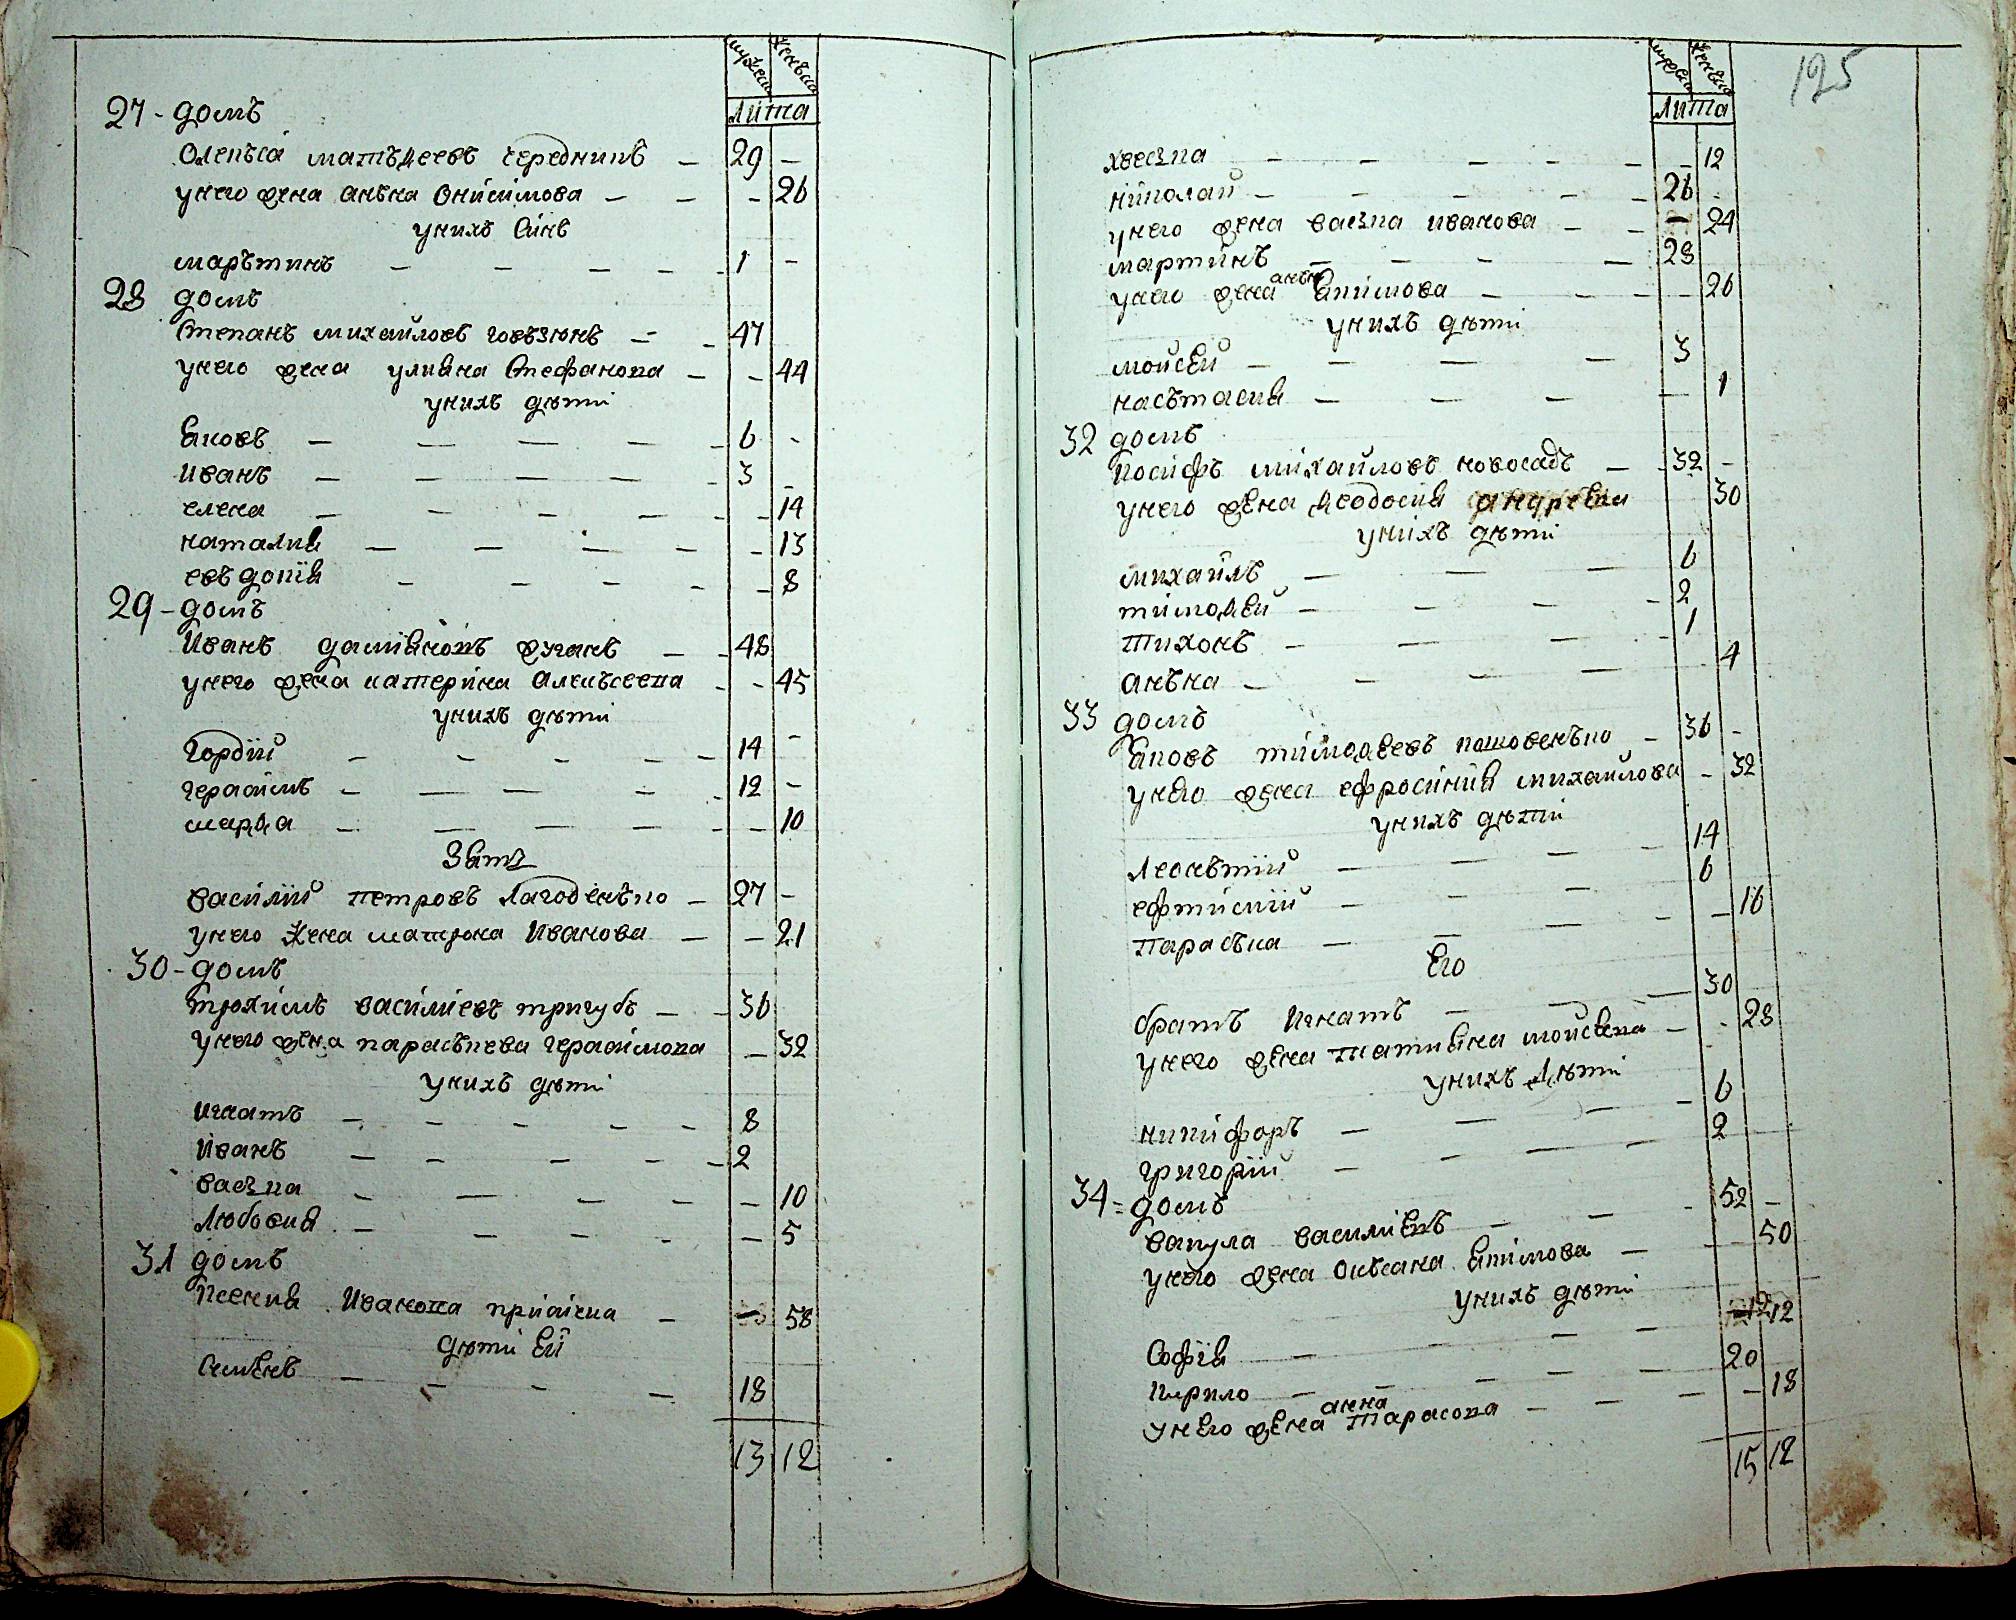 мужеска женьска
Лита
27 - домъ
Олеṇъса матъѳеевъ середникъ — 29 —
унего жена анъна Онисимова — — - 26
унихъ синъ
марътинъ — — — — 1 —
28 домъ
Степанъ михайловъ говъзюнъ — - 47
унего жена улияна Стефанова — - 44
унихъ дѣти
яковъ — — — — 6 -
иванъ — — — — 3 -
елена — — — — - 14
наталия — — — — - 13
евъдокія — — — — - 8
29 - домъ
Иванъ даміяновъ жуганъ — - 48
унего жена катерина Алексѣева - - 45
унихъ дѣти
Гордій — — — — 14 -
герасимъ — — — — 12 -
марѳа — — — — - 10
Зять
василий петровъ Лагоденъко — 27 —
унего жена матрона Иванова — — 21
30 - домъ
трохимъ василиевъ тригубъ — - 36
унего жена парасъкева герасимова — 32
унихъ дѣти
игнатъ — — — — 8
Иванъ — — — — 2
васъка — — — — 10
Любовия — — — — 5
31 домъ
Ксения Иванова — 58
дѣти Ей
Симёнъ — — — 18
13 12
125
мужеска женьска
Лита
хвеська — — — — - 12
николай — — — — 26 -
унего жена васъка иванова — — 24
мартинъ — — — — 28
анъна
унего жена якимова — — - 26
унихъ дѣти
мойсей — — — 3
насътасия — — — — 1
32 домъ
Иосифъ михайловъ новосадъ — 32 -
унего жена ѳеодосия андреева 30
унихъ дѣти
михайлъ — — — 6
тимоѳей — — — 2
тихонъ — — — 1
анъна — — — — 4
33 домъ
яковъ тимоѳеевъ пашовенъко — 36 -
унего жена ефросиния михайлова - 32
унихъ дѣти
Леонътий — — — 14
ефтимий — — — 6
парасъка — — — — 16
Его
братъ Игнатъ — — — 30
унего жена татияна мойсеева — - 28
унихъ дѣти
никифоръ — — — 6
григорій — — — 2
34 - домъ
вакула василиевъ — — 52 —
унего жена оксана якимова — 50
унихъ дѣти
Софія — — — 12
Кирило — — — 20
анна
унего жена тарасова — — — 18
15 12